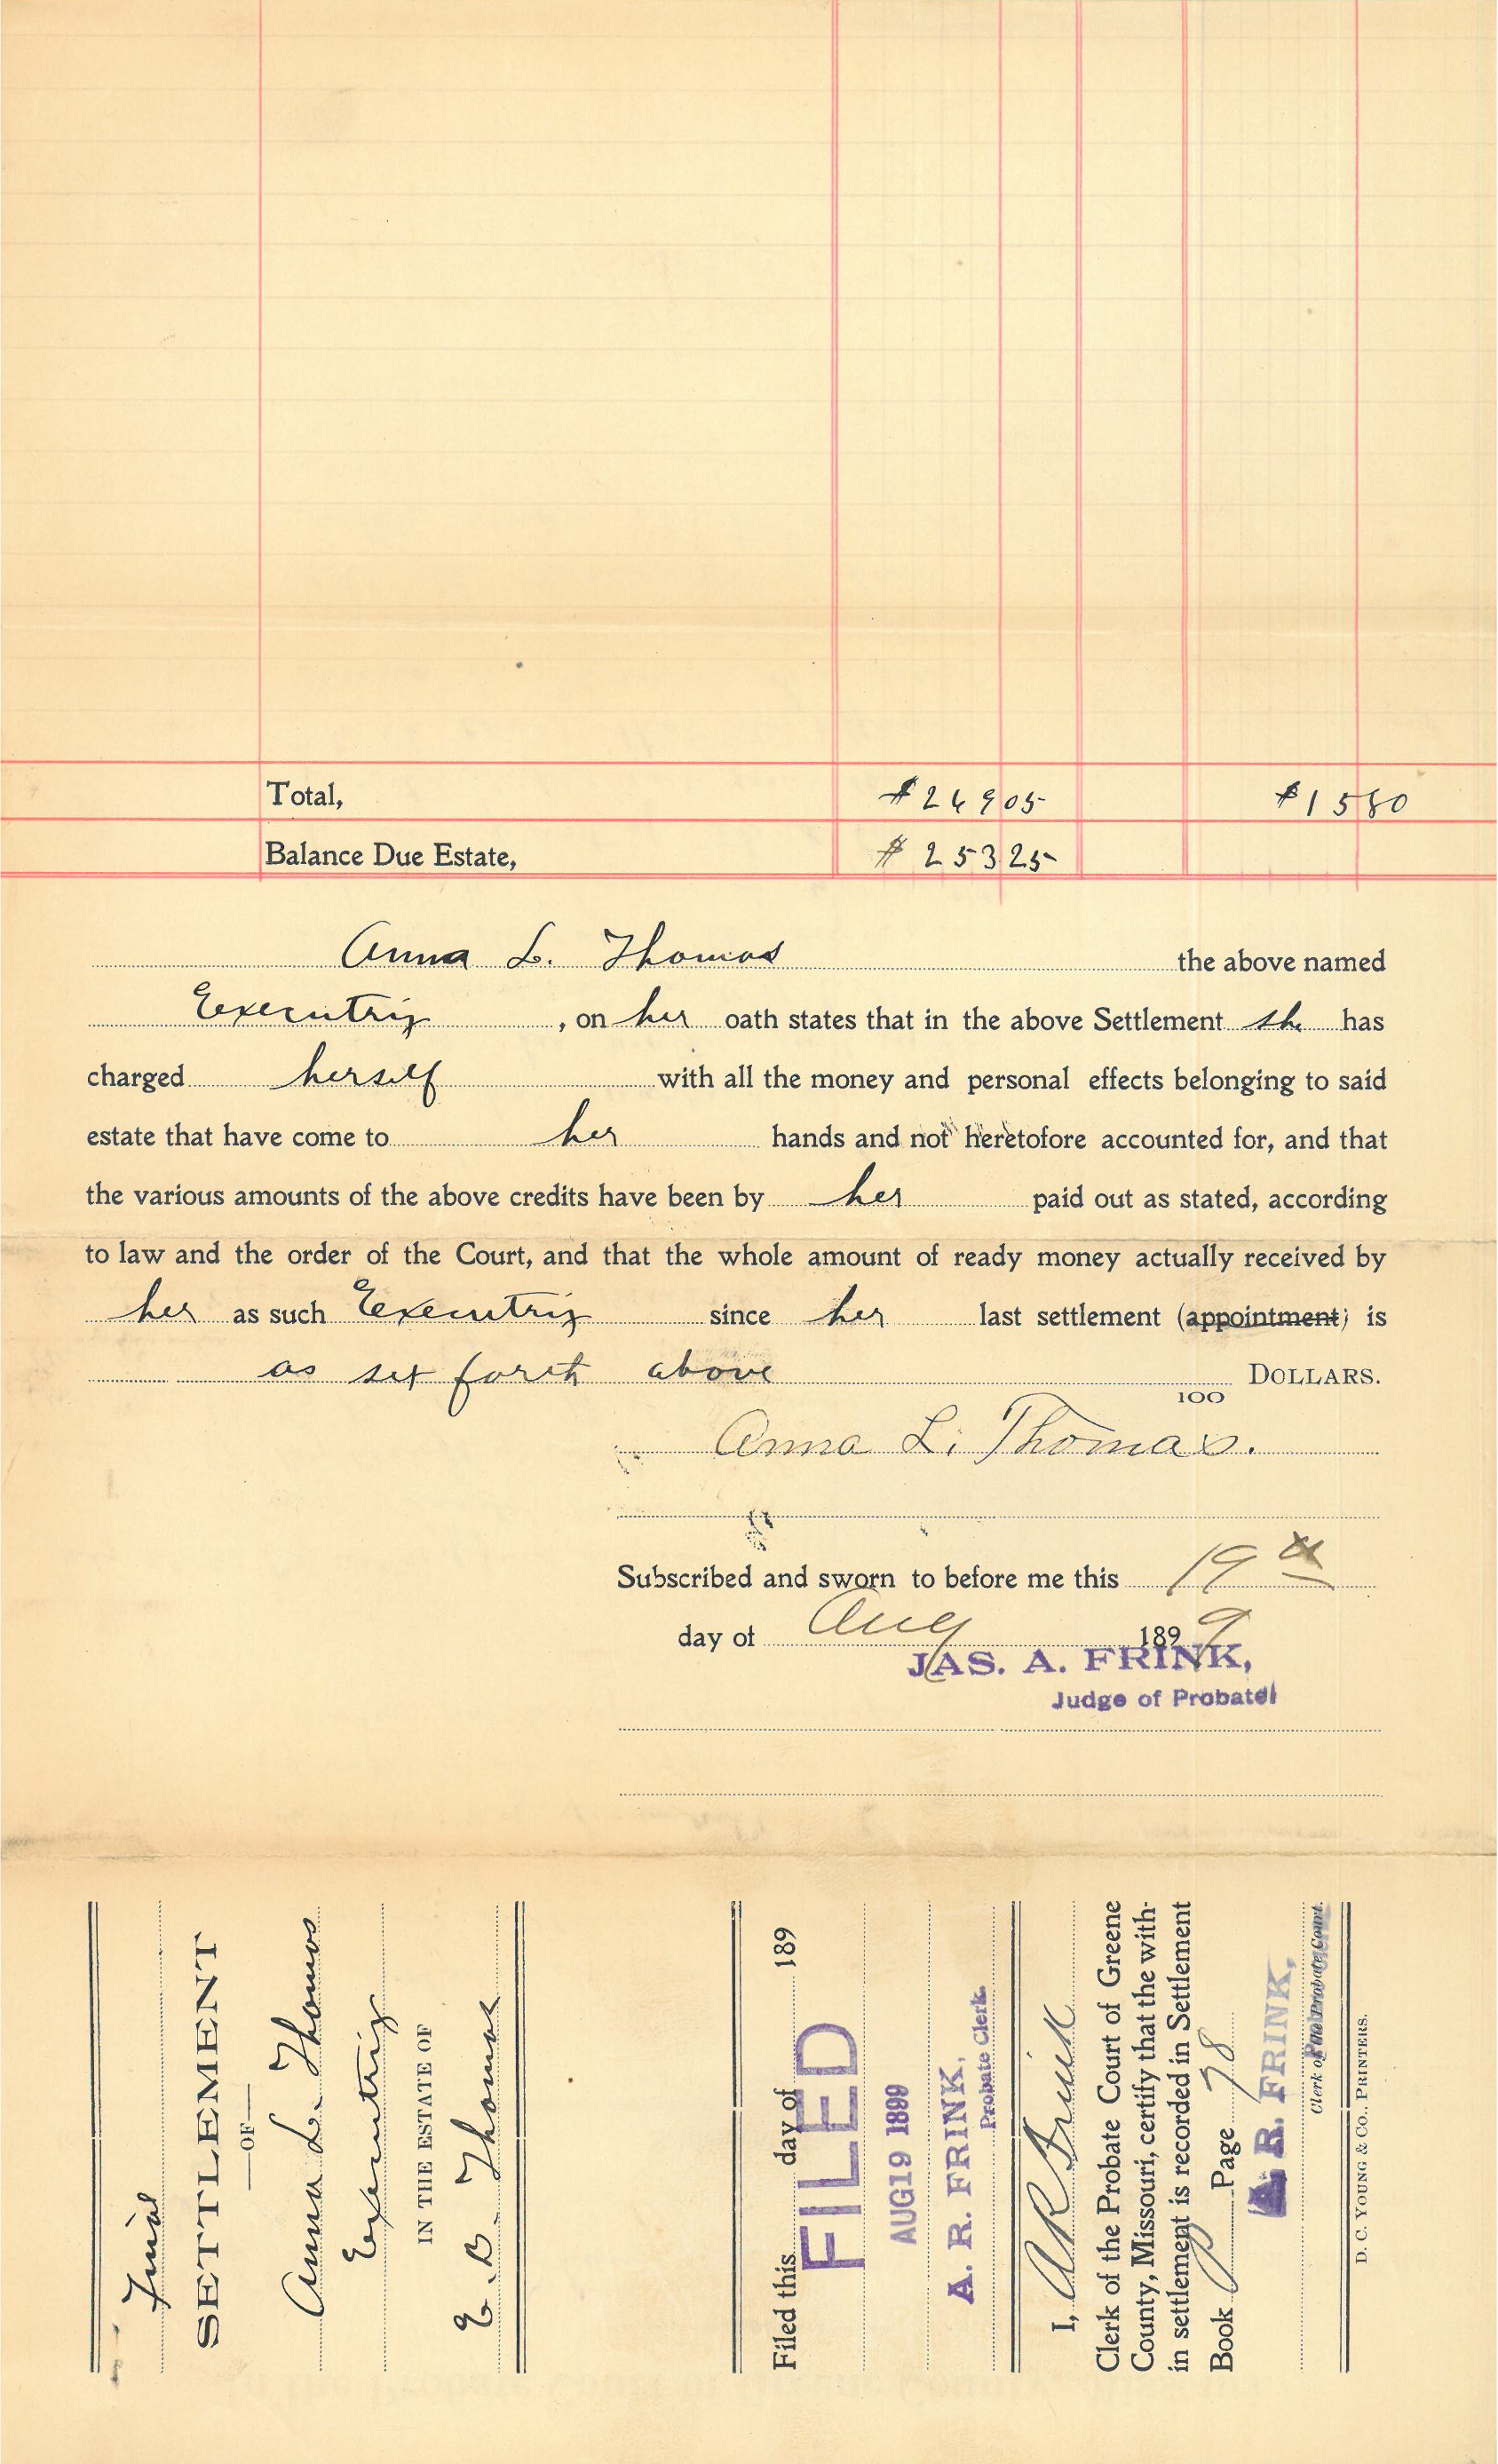 Total, $ 269 05 $ 15 80
Balance Due Estate, $ 253 25
Anna L. Thomas the above named
Executrix, on her oath states that in the above Settlement she has
charged herself with all the money and personal effects belonging to said
estate that have come to her hands and not heretofore accounted for, and that
the various amounts of the above credits have been by her paid out as stated, according
to law and the order of the Court, and that the whole amount of ready money actually received by
her as such Executrix since her last settlement (appointment) is
as set forth above 100 DOLLARS.
Anna L. Thomas.
Subscribed and sworn to before me this 19th
day of Aug 1899
JAS. A. FRINK,
Judge of Probate
Final
SETTLEMENT
—OF—
Anna L. Thomas
Executrix
IN THE ESTATE OF
E. B. Thomas
Filed this day of 189
FILED
AUG 19 1899
A. R. FRINK,
Probate Clerk.
I, A R Frink
Clerk of the Probate Court of Greene
County, Missouri, certify that the with-
in settlement is recorded in Settlement
Book Page 78
A. R. FRINK,
Clerk of Probate Court.
D. C. YOUNG & CO., PRINTERS.